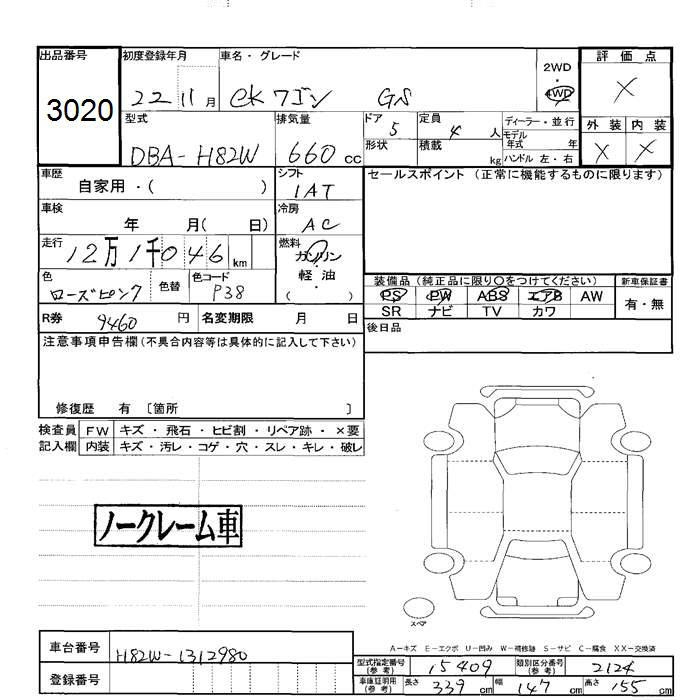 出品番号 初度登録年月 車名・グレード 評価点
3020 22 11月 eKワゴン GS 2WD・4WD X
型式 排気量 ドア 5 定員 4人 ディーラー・並行 外装 内装
DBA-H82W 660cc 形状 積載 kg モデル年式 年 ハンドル 左・右 X X
車歴 自家用・( ) シフト 1AT セールスポイント(正常に機能するものに限ります)
車検 年 月( 日) 冷房 AC
走行 12万1千046km 燃料 ガソリン・軽油( )
色 ローズピンク 色替 色コード P38 装備品(純正品に限り○をつけてください) 新車保証書
PS PW ABS エアB AW 有・無
SR ナビ TV カワ
R券 9460円 名変期限 月 日 後日品
注意事項申告欄(不具合内容等は具体的に記入して下さい)
修復歴 有 〔箇所 〕
検査員 FW キズ・飛石・ヒビ割・リペア跡・×要
記入欄 内装 キズ・汚レ・コゲ・穴・スレ・キレ・破レ
ノークレーム車
スペア
A-キズ E-エクボ U-凹み W-補修跡 S-サビ C-腐食 XX-交換済
車台番号 H82W-1312980
型式指定番号(参考) 15409 類別区分番号(参考) 2124
登録番号 車庫証明用(参考) 長さ 339cm 幅 147cm 高さ 155cm